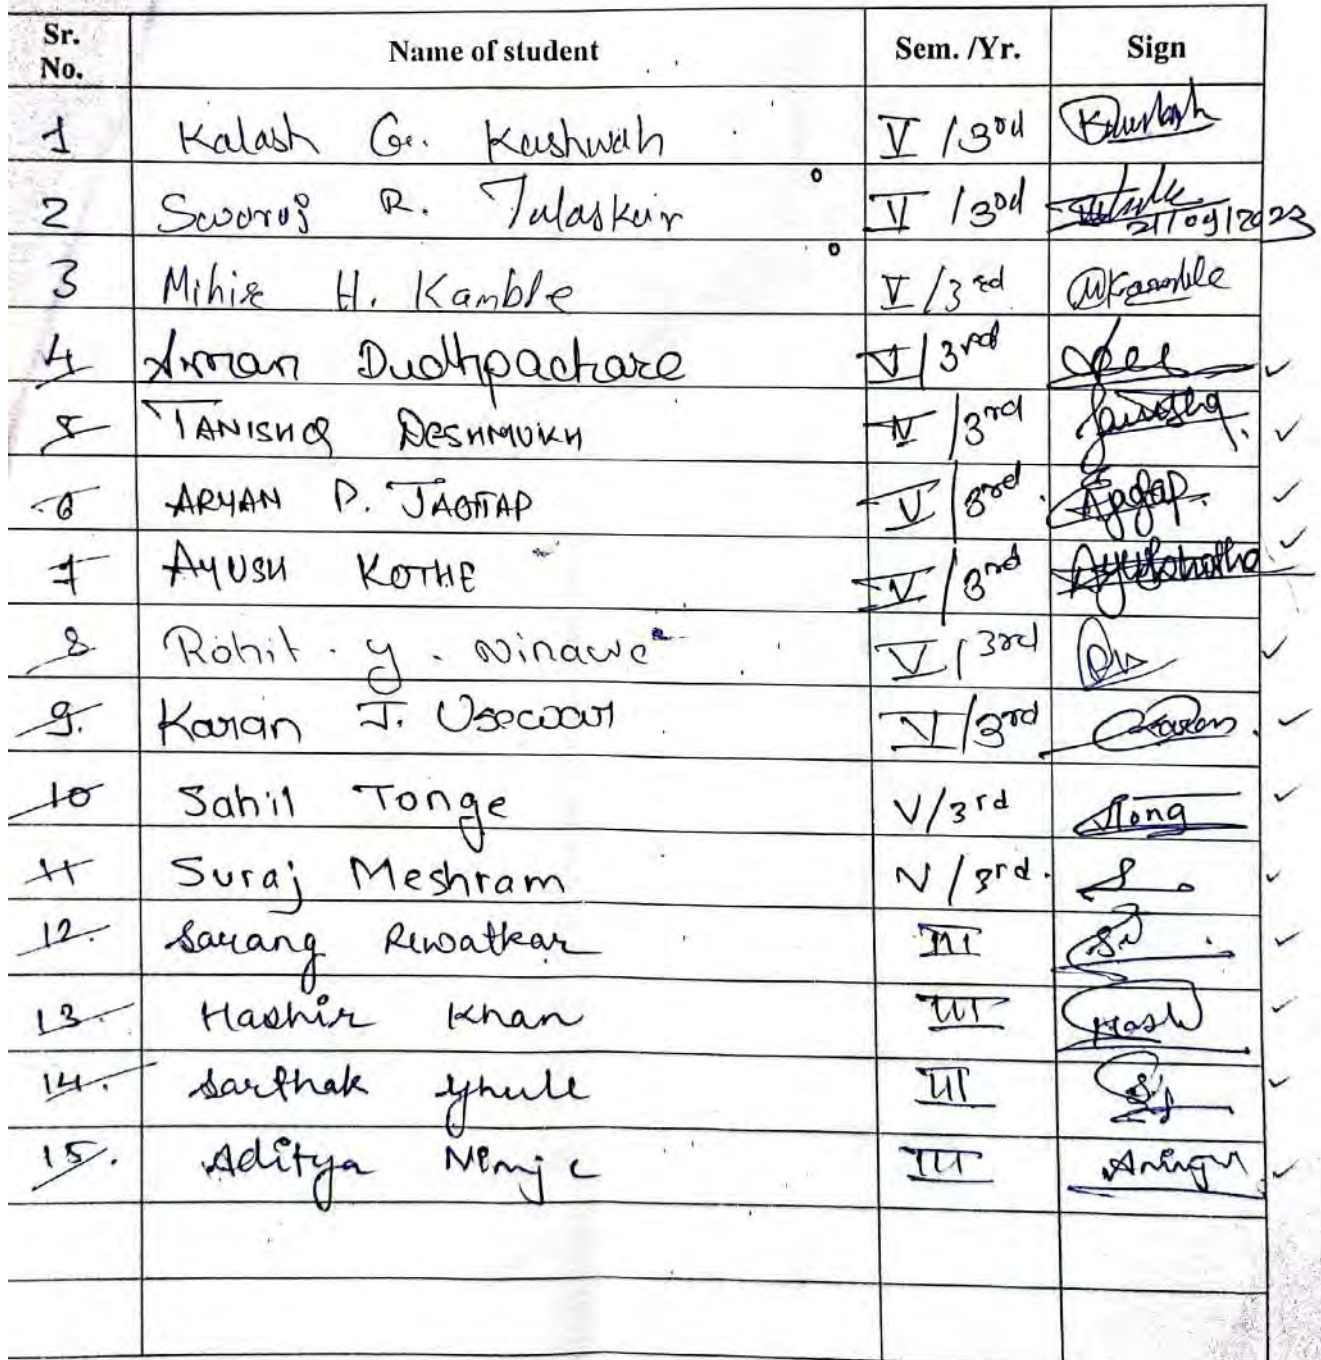 Sr. No. Name of student Sem. /Yr. Sign
1 Kalash G. Kushwah V / 3rd
2 Swaroj R. Talaskar V / 3rd 21/09/2023
3 Mihir H. Kamble V / 3rd MKamble
4 Aman Dudhpachare V / 3rd
5 TANISHQ DESHMUKH V / 3rd Tanishq
6 ARYAN P. JAGTAP V / 3rd
7 AYUSH KOTHE V / 3rd
8 Rohit . y . Ninawe V / 3rd
9. Karan J. Usecwar V / 3rd Karan
10 Sahil Tonge V/3rd Tong
11 Suraj Meshram V / 3rd.
12. Sarang Rewatkar III
13. Hashir Khan III Hash
14. Sarthak Ghule III
15. Aditya Nimje III